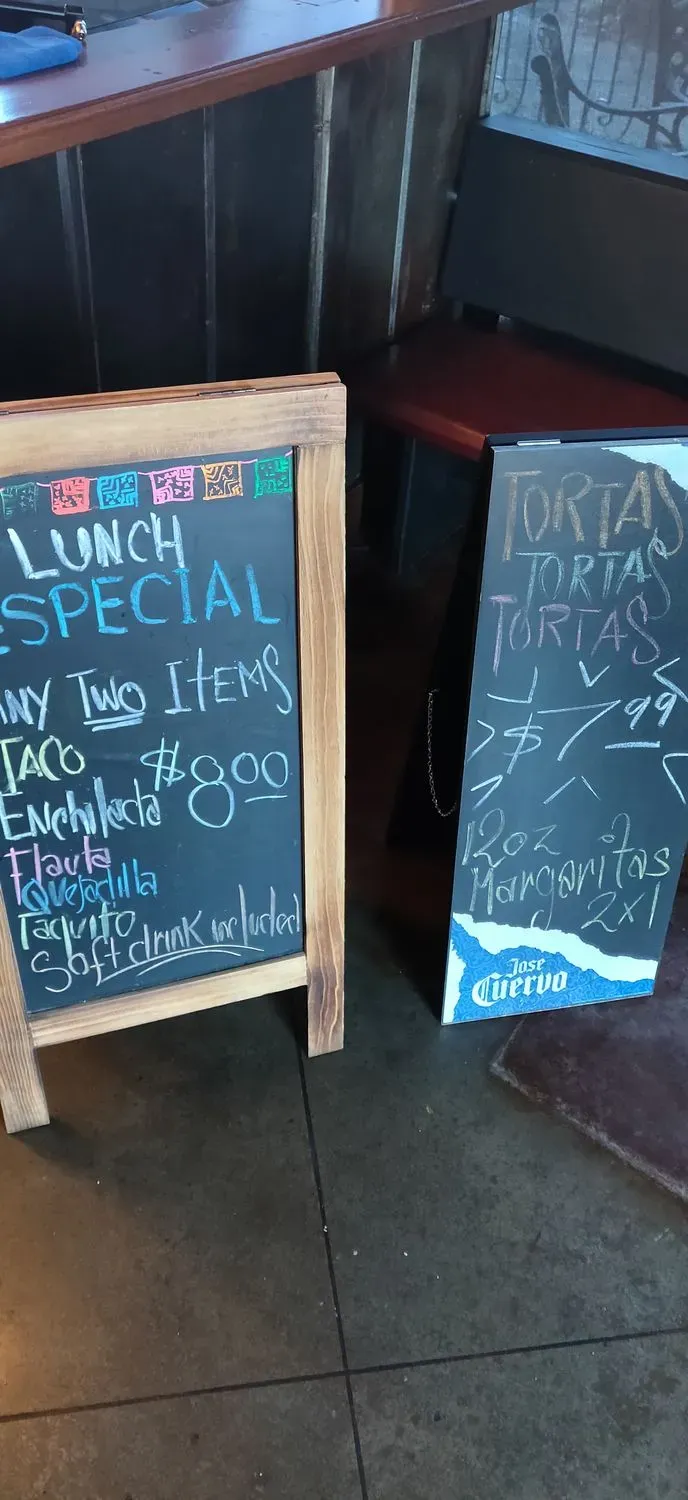 LUNCH
SPECIAL
ANY TWO ITEMS
TACO
$8.00
Enchilada
Flauta
Quejadilla
Taquito
Soft drink included
TORTAS
TORTAS
TORTAS
$7.99
12oz
Margaritas
2x1
Jose
Cuervo